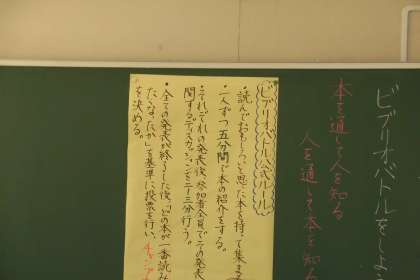 ビブリオバトルをしよう
本を通して人を知る
人を通して本を知る
ビブリオバトル公式ルール
・読んでおもしろいと思った本を持って集まる
・一人ずつ五分間で本の紹介をする。
・それぞれの発表後、参加者全員でその発表に
関するディスカッションを二〜三分行う。
・全ての発表が終了した後、「どの本が一番読み
たくなったか」を基準に投票を行い、
を決める。